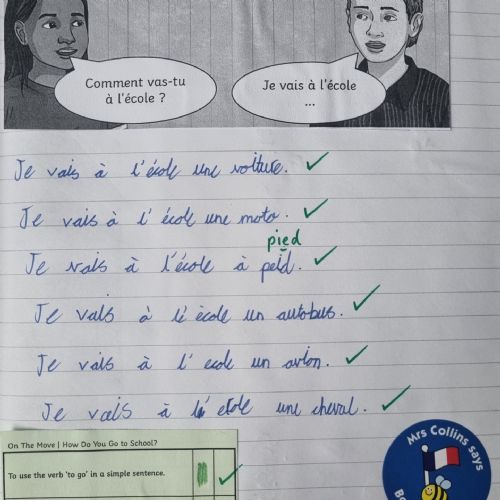 Comment vas-tu
à l'école ?
Je vais à l'école
...
Je vais à l'école une voiture.
Je vais à l'école une moto.
pied
Je vais à l'école à peid.
Je vais à l'école un autobus.
Je vais à l'ecole un avion.
Je vais à une cheval.
On The Move | How Do You Go to School?
To use the verb 'to go' in a simple sentence.
Mrs Collins says